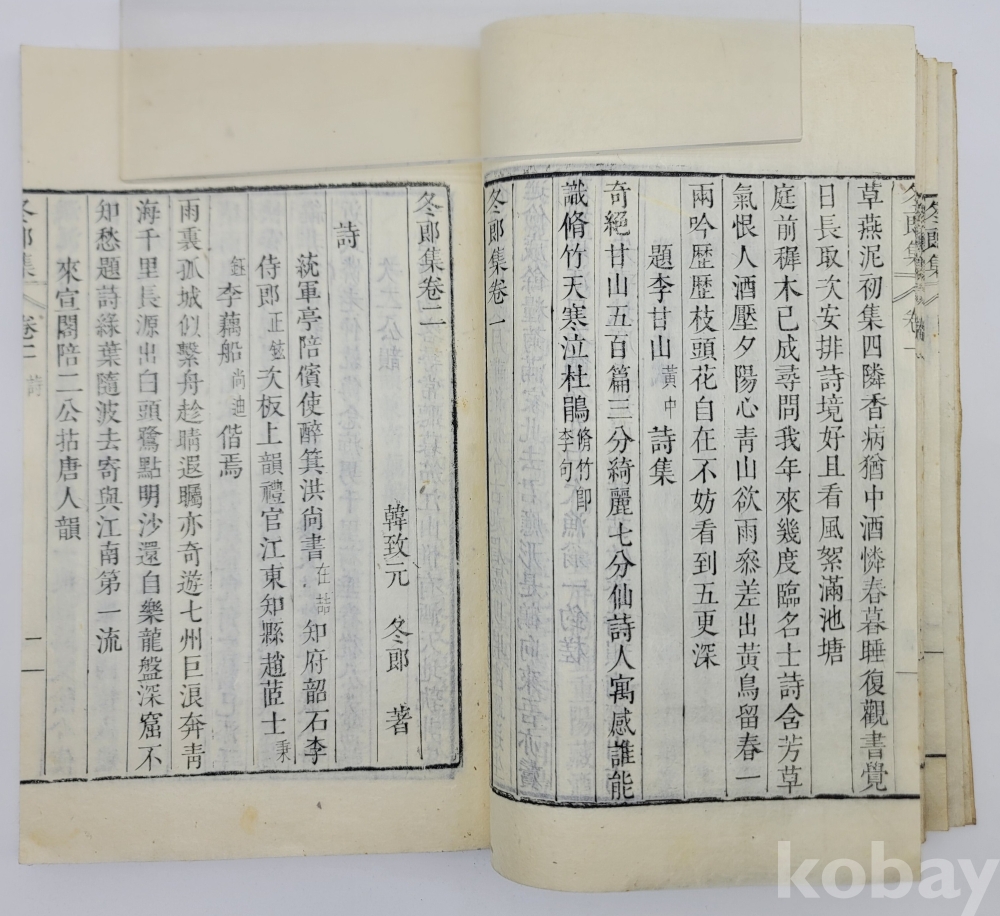 草燕泥初集四隣香病猶中酒憐春暮睡復觀書覺
日長取次安排詩境好且看風絮滿池塘
庭前穉木已成尋問我年來幾度臨名士詩含芳草
氣恨人酒壓夕陽心靑山欲雨參差出黃鳥留春一
兩吟歷歷枝頭花自在不妨看到五更深
題李甘山黃中詩集
奇絕甘山五百篇三分綺麗七分仙詩人寓感誰能
識脩竹天寒泣杜鵑脩竹卽李句
冬郞集卷一
冬郞集卷二
韓致元 冬郞 著
詩
統軍亭陪儐使醉箕洪尙書在喆知府韶石李
侍郞正鉉次板上韻禮官江東知縣趙藍士秉
鈺李藕船尙迪偕焉
雨裏孤城似繫舟趁晴遐矚亦奇遊七州巨浪奔靑
海千里長源出白頭鷺點明沙還自樂龍盤深窟不
知愁題詩綠葉隨波去寄與江南第一流
來宣閣陪二公拈唐人韻
冬郞集 卷二 詩 一
冬郞集 卷一
冬郞集
kobay